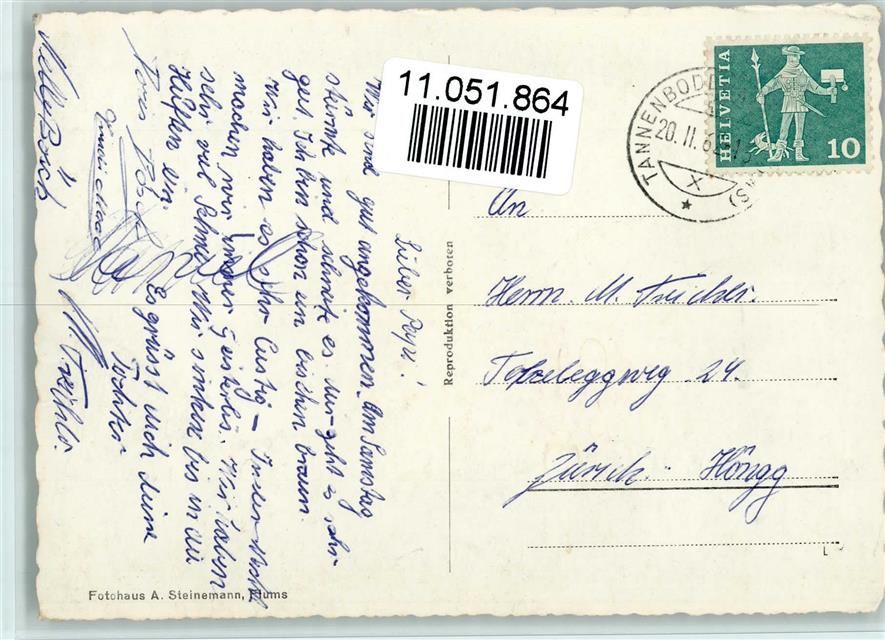 11.051.864
HELVETIA
10
TANNENBODEN
20.11.6
An
Herrn. M.
24.
Zürich - Höngg
Reproduktion verboten
Fotohaus A. Steinemann, Flums
Lieber Papi!
Wir sind gut angekommen. Am Samstag
stürmte und schneite es. Mir geht es sehr
gut. Ich bin schon ein bischen braun.
Wir haben es sehr lustig - In der
machen wir immer Geisterlis. Wir haben
sehr viel Schnee. Wir sinken bis in die
Hüften ein.
Es grüsst dich deine
Tochter